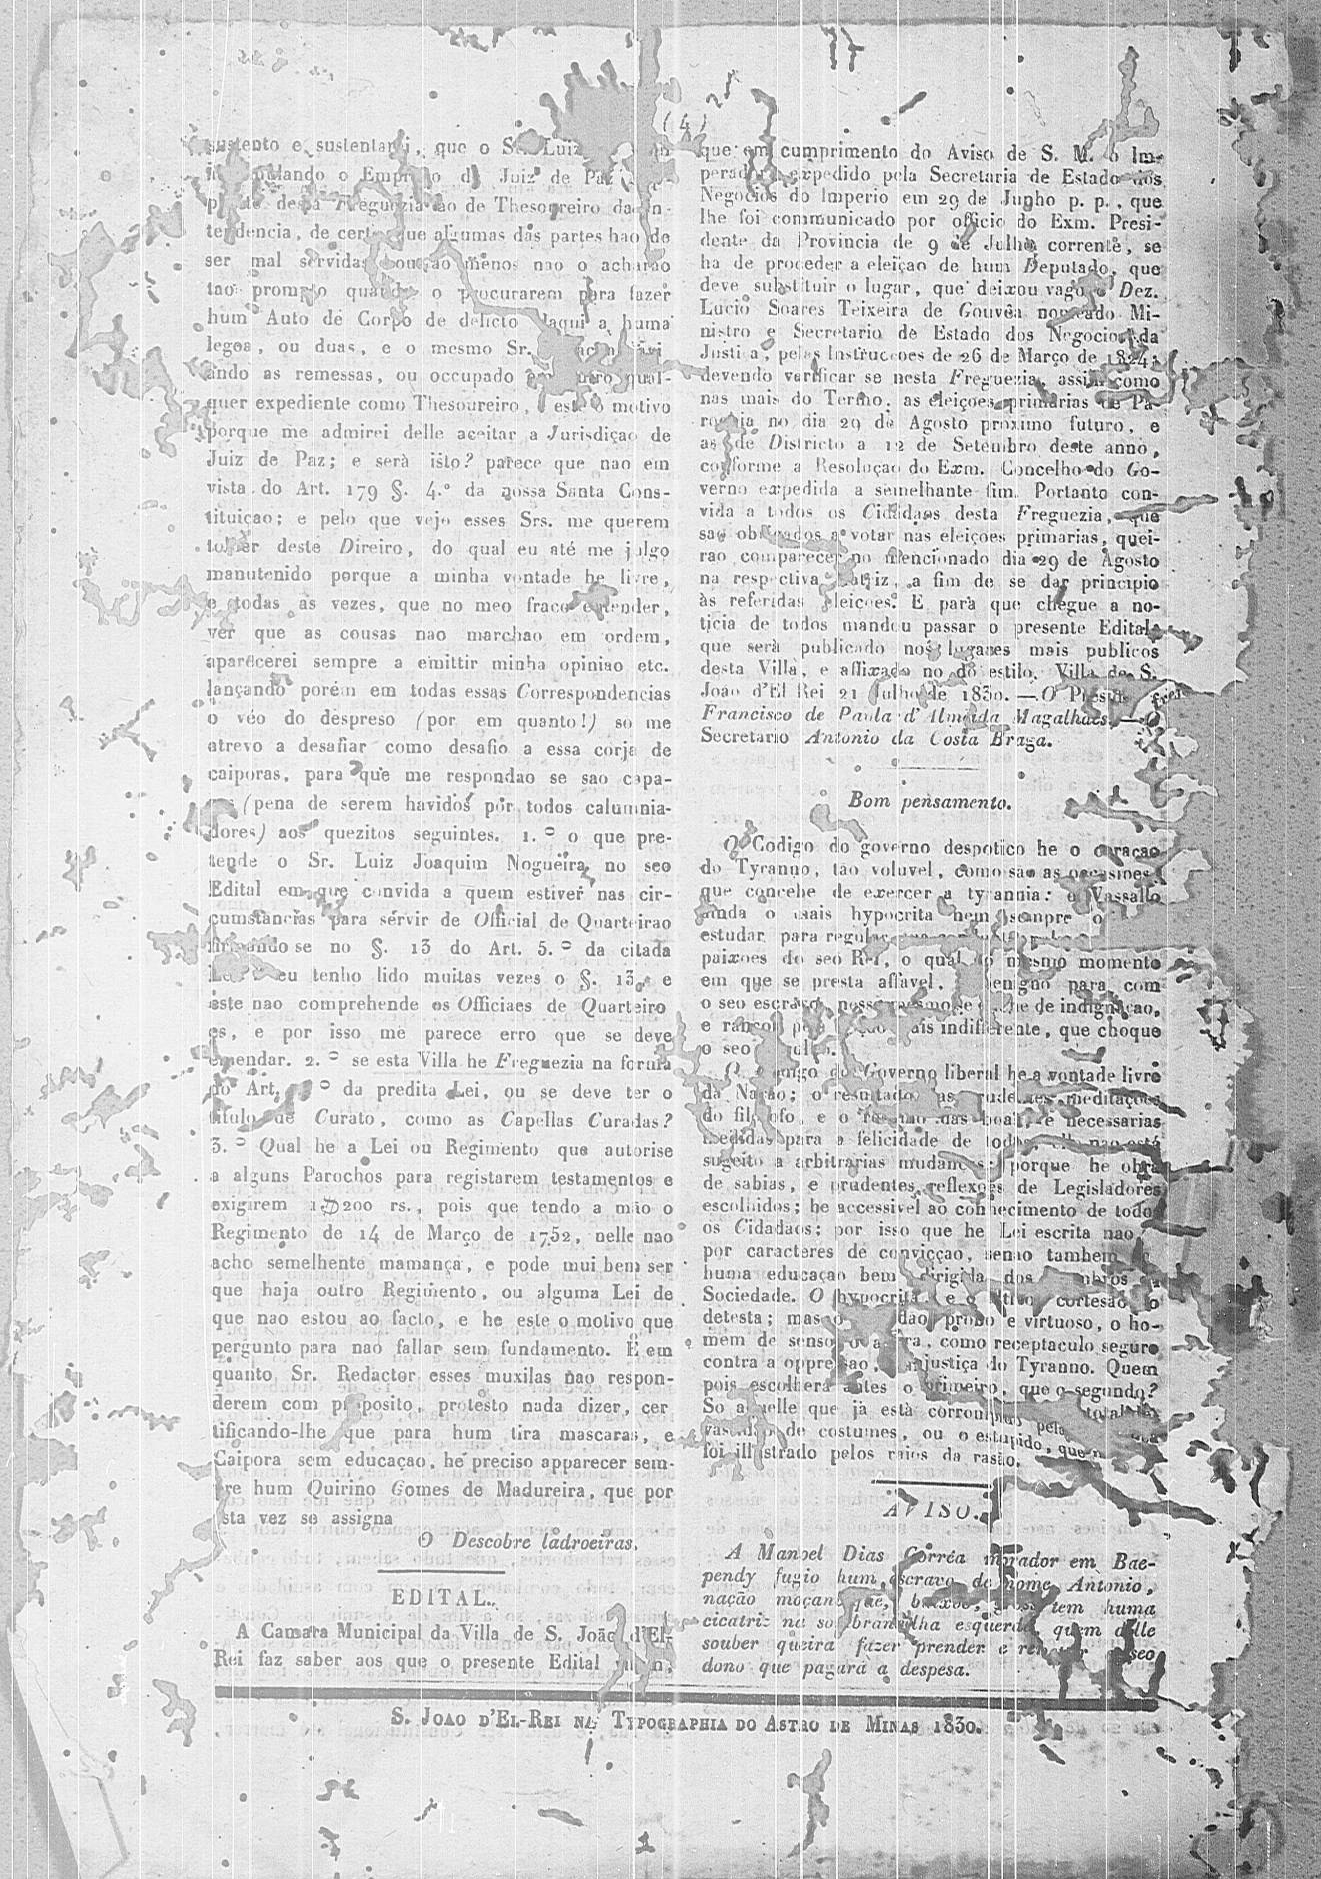 (4)
sustento e sustentarei, que o Sr. Luiz
o Emprego de Juiz de Paz
desta Freguezia ao de Thesoureiro da In-
tendencia, de certo que algumas das partes hao de
ser mal servidas, ou ao menos nao o acharáo
tao prompto quando o procurarem para fazer
hum Auto de Corpo de delicto daqui a huma
legoa, ou duas, e o mesmo Sr.
ando as remessas, ou occupado qual-
quer expediente como Thesoureiro, este o motivo
porque me admirei delle aceitar a Jurisdiçao de
Juiz de Paz; e serà isto? parece que nao em
vista do Art. 179 §. 4.º da nossa Santa Cons-
tituiçao; e pelo que vejo esses Srs. me querem
tolher deste Direiro, do qual eu até me julgo
manutenido porque a minha vontade he livre,
e todas as vezes, que no meo fraco entender,
ver que as cousas nao marchao em ordem,
aparecerei sempre a emittir minha opiniao etc.
lançando porém em todas essas Correspondencias
o véo do despreso (por em quanto!) so me
atrevo a desafiar como desafio a essa corja de
caiporas, para que me respondao se sao capa-
(pena de serem havidos por todos calumnia-
dores) aos quezitos seguintes. 1.º o que pre-
tende o Sr. Luiz Joaquim Nogueira no seo
Edital em que convida a quem estiver nas cir-
cumstancias para servir de Official de Quarteirao
firmando se no §. 13 do Art. 5.º da citada
eu tenho lido muitas vezes o §. 13, e
este nao comprehende os Officiaes de Quarteiro
es, e por isso me parece erro que se deve
emendar. 2.º se esta Villa he Freguezia na forma
do Art. º da predita Lei, ou se deve ter o
titulo de Curato, como as Capellas Curadas?
3.º Qual he a Lei ou Regimento que autorise
a alguns Parochos para registarem testamentos e
exigirem 1$200 rs., pois que tendo a mão o
Regimento de 14 de Março de 1752, nelle nao
acho semelhente mamança, e pode mui bem ser
que haja outro Regimento, ou alguma Lei de
que nao estou ao facto, e he este o motivo que
pergunto para naõ fallar sem fundamento. E em
quanto, Sr. Redactor esses muxilas nao respon-
derem com proposito, protesto nada dizer, cer
tificando-lhe que para hum tira mascaras, e
Caipora sem educaçao, he preciso apparecer sem-
pre hum Quirino Gomes de Madureira, que por
esta vez se assigna
O Descobre ladroeiras.
EDITAL.
A Camara Municipal da Villa de S. João d'El-
Rei faz saber aos que o presente Edital virem,
que em cumprimento do Aviso de S. M. o Im-
perador expedido pela Secretaria de Estado dos
Negocios do Imperio em 29 de Junho p. p., que
lhe foi communicado por officio do Exm. Presi-
dente da Provincia de 9 de Julho corrente, se
ha de proceder a eleiçao de hum Deputado, que
deve substituir o lugar, que deixou vago o Dez.
Lucio Soares Teixeira de Gouvêa nomeado Mi-
nistro e Secretario de Estado dos Negocios da
Justiça, pelas Instrucçoes de 26 de Março de 1824;
devendo verificar se nesta Freguezia, assim como
nas mais do Termo, as eleiçoes primarias de Pa-
rochia no dia 29 de Agosto proximo futuro, e
as de Districto a 12 de Setembro deste anno,
conforme a Resoluçao do Exm. Concelho do Go-
verno expedida a semelhante fim. Portanto con-
vida a todos os Cidadaos desta Freguezia, que
sao obrigados a votar nas eleições primarias, quei-
rao comparecer no mencionado dia 29 de Agosto
na respectiva Matriz, a fim de se dar principio
às referidas eleiçoes. E para que chegue a no-
ticia de todos mandou passar o presente Edital
que serà publicado nos lugares mais publicos
desta Villa, e affixado no do estilo. Villa de S.
João d'El Rei 21 Julho de 1830. — O Presid.
Francisco de Paula d'Almeida Magalhaes — O
Secretario Antonio da Costa Braga.
Bom pensamento.
O Codigo do governo despotico he o coraçao
do Tyranno, tão voluvel, como são as occasioes
que concebe de exercer a tyrannia: o Vassallo
ainda o mais hypocrita nem sempre o
estudar para regular
paixoes do seo Rei, o qual no mesmo momento
em que se presta affavel, benigno para com
o seo escravo, nesse mesmo se enche de indignaçao,
e rancor mais indifferente, que choque
o seo
O Codigo do Governo liberal he a vontade livre
da Naçao; o resultado das prudentes meditações
do filosofo, e o das boas, e necessarias
medidas para a felicidade de todos elle nao está
sugeito a arbitrarias mudanças: porque he obra
de sabias, e prudentes reflexoes de Legisladores
escolhidos; he accessivel ao conhecimento de todos
os Cidadaos; por isso que he Lei escrita nao
por caracteres de convicçao, senao tambem
huma educaçao bem dirigida dos membros
Sociedade. O hypocrita, e o altivo cortesão o
detesta; mas o Cidadao probo e virtuoso, o ho-
mem de senso o , como receptaculo seguro
contra a oppressao, injustiça do Tyranno. Quem
pois escolherà antes o primeiro, que o segundo?
So aquelle que já está corrompido pela total
de costumes, ou o estupido, que
foi illustrado pelos raios da rasão.
AVISO.
A Manoel Dias Corrêa morador em Bae-
pendy fugio hum escravo de nome Antonio,
nação moçambique, baixo, grosso tem huma
cicatriz na sobrancelha esquerda quem delle
souber queira fazer prender e remeter seo
dono que pagarà a despesa.
S. JOAO D'EL-REI NA TYPOGRAPHIA DO ASTRO DE MINAS 1830.